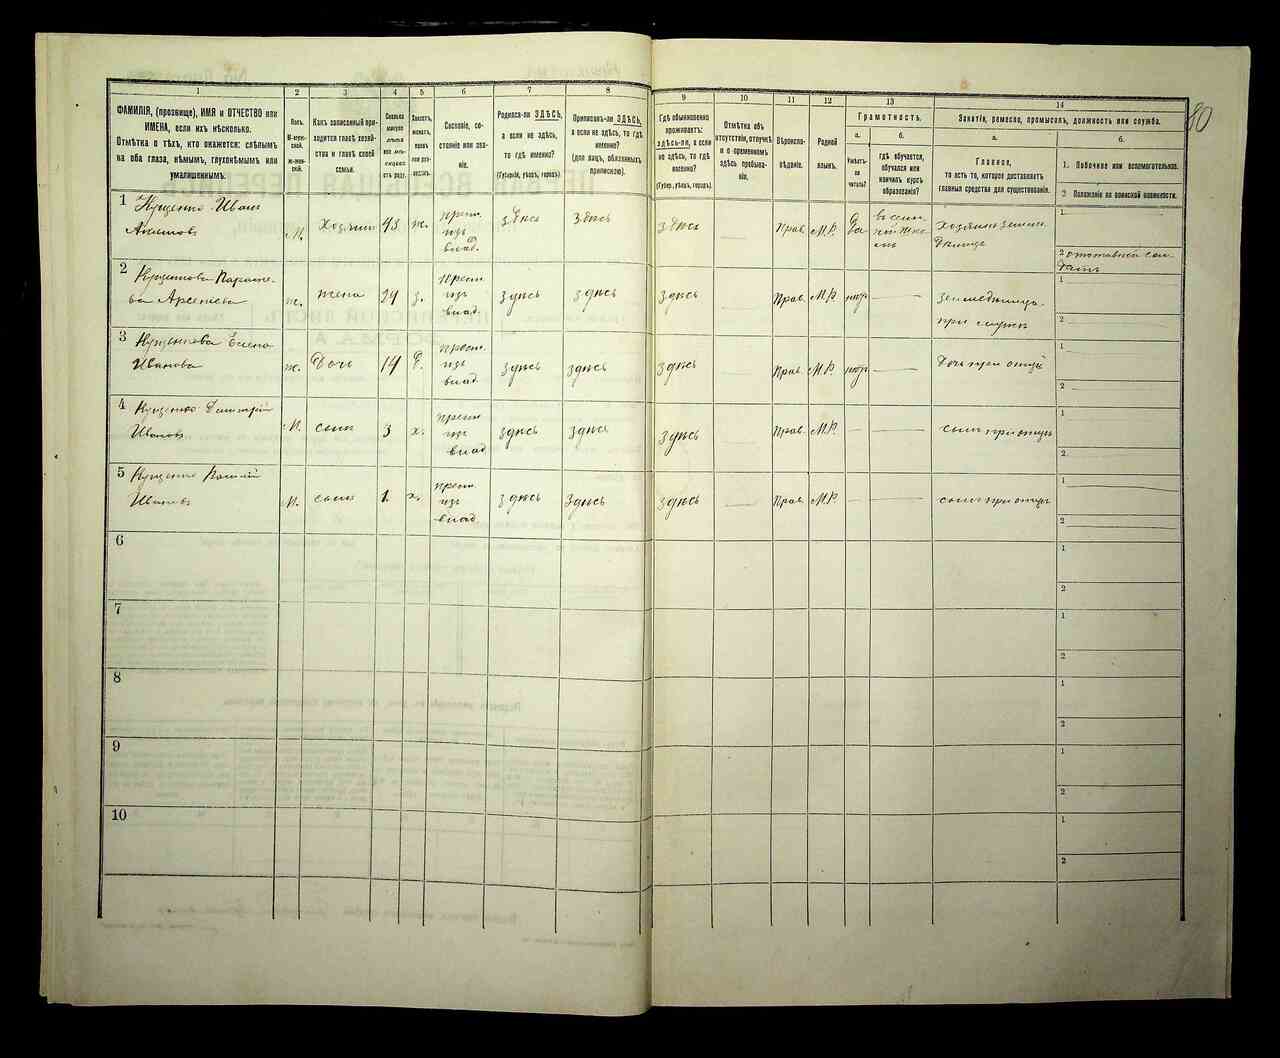 80
1
2
3
4
5
6
7
8
9
10
11
12
13
14
ФАМИЛІЯ, (прозвище), ИМЯ и ОТЧЕСТВО или
ИМЕНА, если ихъ нѣсколько.
Отмѣтка о тѣхъ, кто окажется: слѣпымъ
на оба глаза, нѣмымъ, глухонѣмымъ или
умалишеннымъ.
Полъ.
М-мужской.
Ж-женскій.
Какъ записанный приходится
главѣ хозяйства
и главѣ своей
семьи.
Сколько
минуло
лѣтъ
или мѣсяцевъ
отъ роду.
Холостъ,
женатъ,
вдовъ
или разведенъ.
Сословіе, состояніе
или званіе.
Родился-ли ЗДѢСЬ,
а если не здѣсь,
то гдѣ именно?
(Губернія, уѣздъ, городъ).
Приписанъ-ли ЗДѢСЬ,
а если не здѣсь, то гдѣ
именно?
(для лицъ, обязанныхъ
припискою).
Гдѣ обыкновенно
проживаетъ:
здѣсь-ли, а если
не здѣсь, то гдѣ
именно?
(Губер, уѣздъ, городъ).
Отмѣтка объ
отсутствіи, отлучкѣ
и о временномъ
здѣсь пребываніи.
Вѣроисповѣданіе.
Родной
языкъ.
Грамотность.
а.
Умѣетъ-ли
читать?
б.
гдѣ обучается,
обучался или
кончилъ курсъ
образованія?
Занятіе, ремесло, промыселъ, должность или служба.
а.
Главное,
то есть то, которое доставляетъ
главныя средства для существованія.
б.
1. Побочное или вспомогательное.
2 Положеніе по воинской повинности.
1 Кущенко Иванъ
Акимовъ
М. Хозяинъ 43 ж. крест.
изъ
влад. здѣсь здѣсь здѣсь — Прав. М.Р. Да
Хозяинъ
1
2
2
Арсеніева
ж. жена 24 з. крест.
изъ
влад. здѣсь здѣсь здѣсь — Прав. М.Р. —
при мужѣ
1
2
3
Елена
Иванова
ж. Дочь 14 крест.
изъ
влад. здѣсь здѣсь здѣсь — Прав. М.Р. —
Дочь при отцѣ
1
2
4 Кущенко Дмитрій
Ивановъ
М. сынъ 3 х. крест.
изъ
влад здѣсь здѣсь здѣсь — Прав. М.Р. — —
сынъ при отцѣ
1
2
5 Кущенко
Ивановъ
М. сынъ 1. х. крест.
изъ
влад здѣсь здѣсь здѣсь — Прав. М.Р. — —
сынъ при отцѣ
1
2
6
1
2
7
1
2
8
1
2
9
1
2
10
1
2